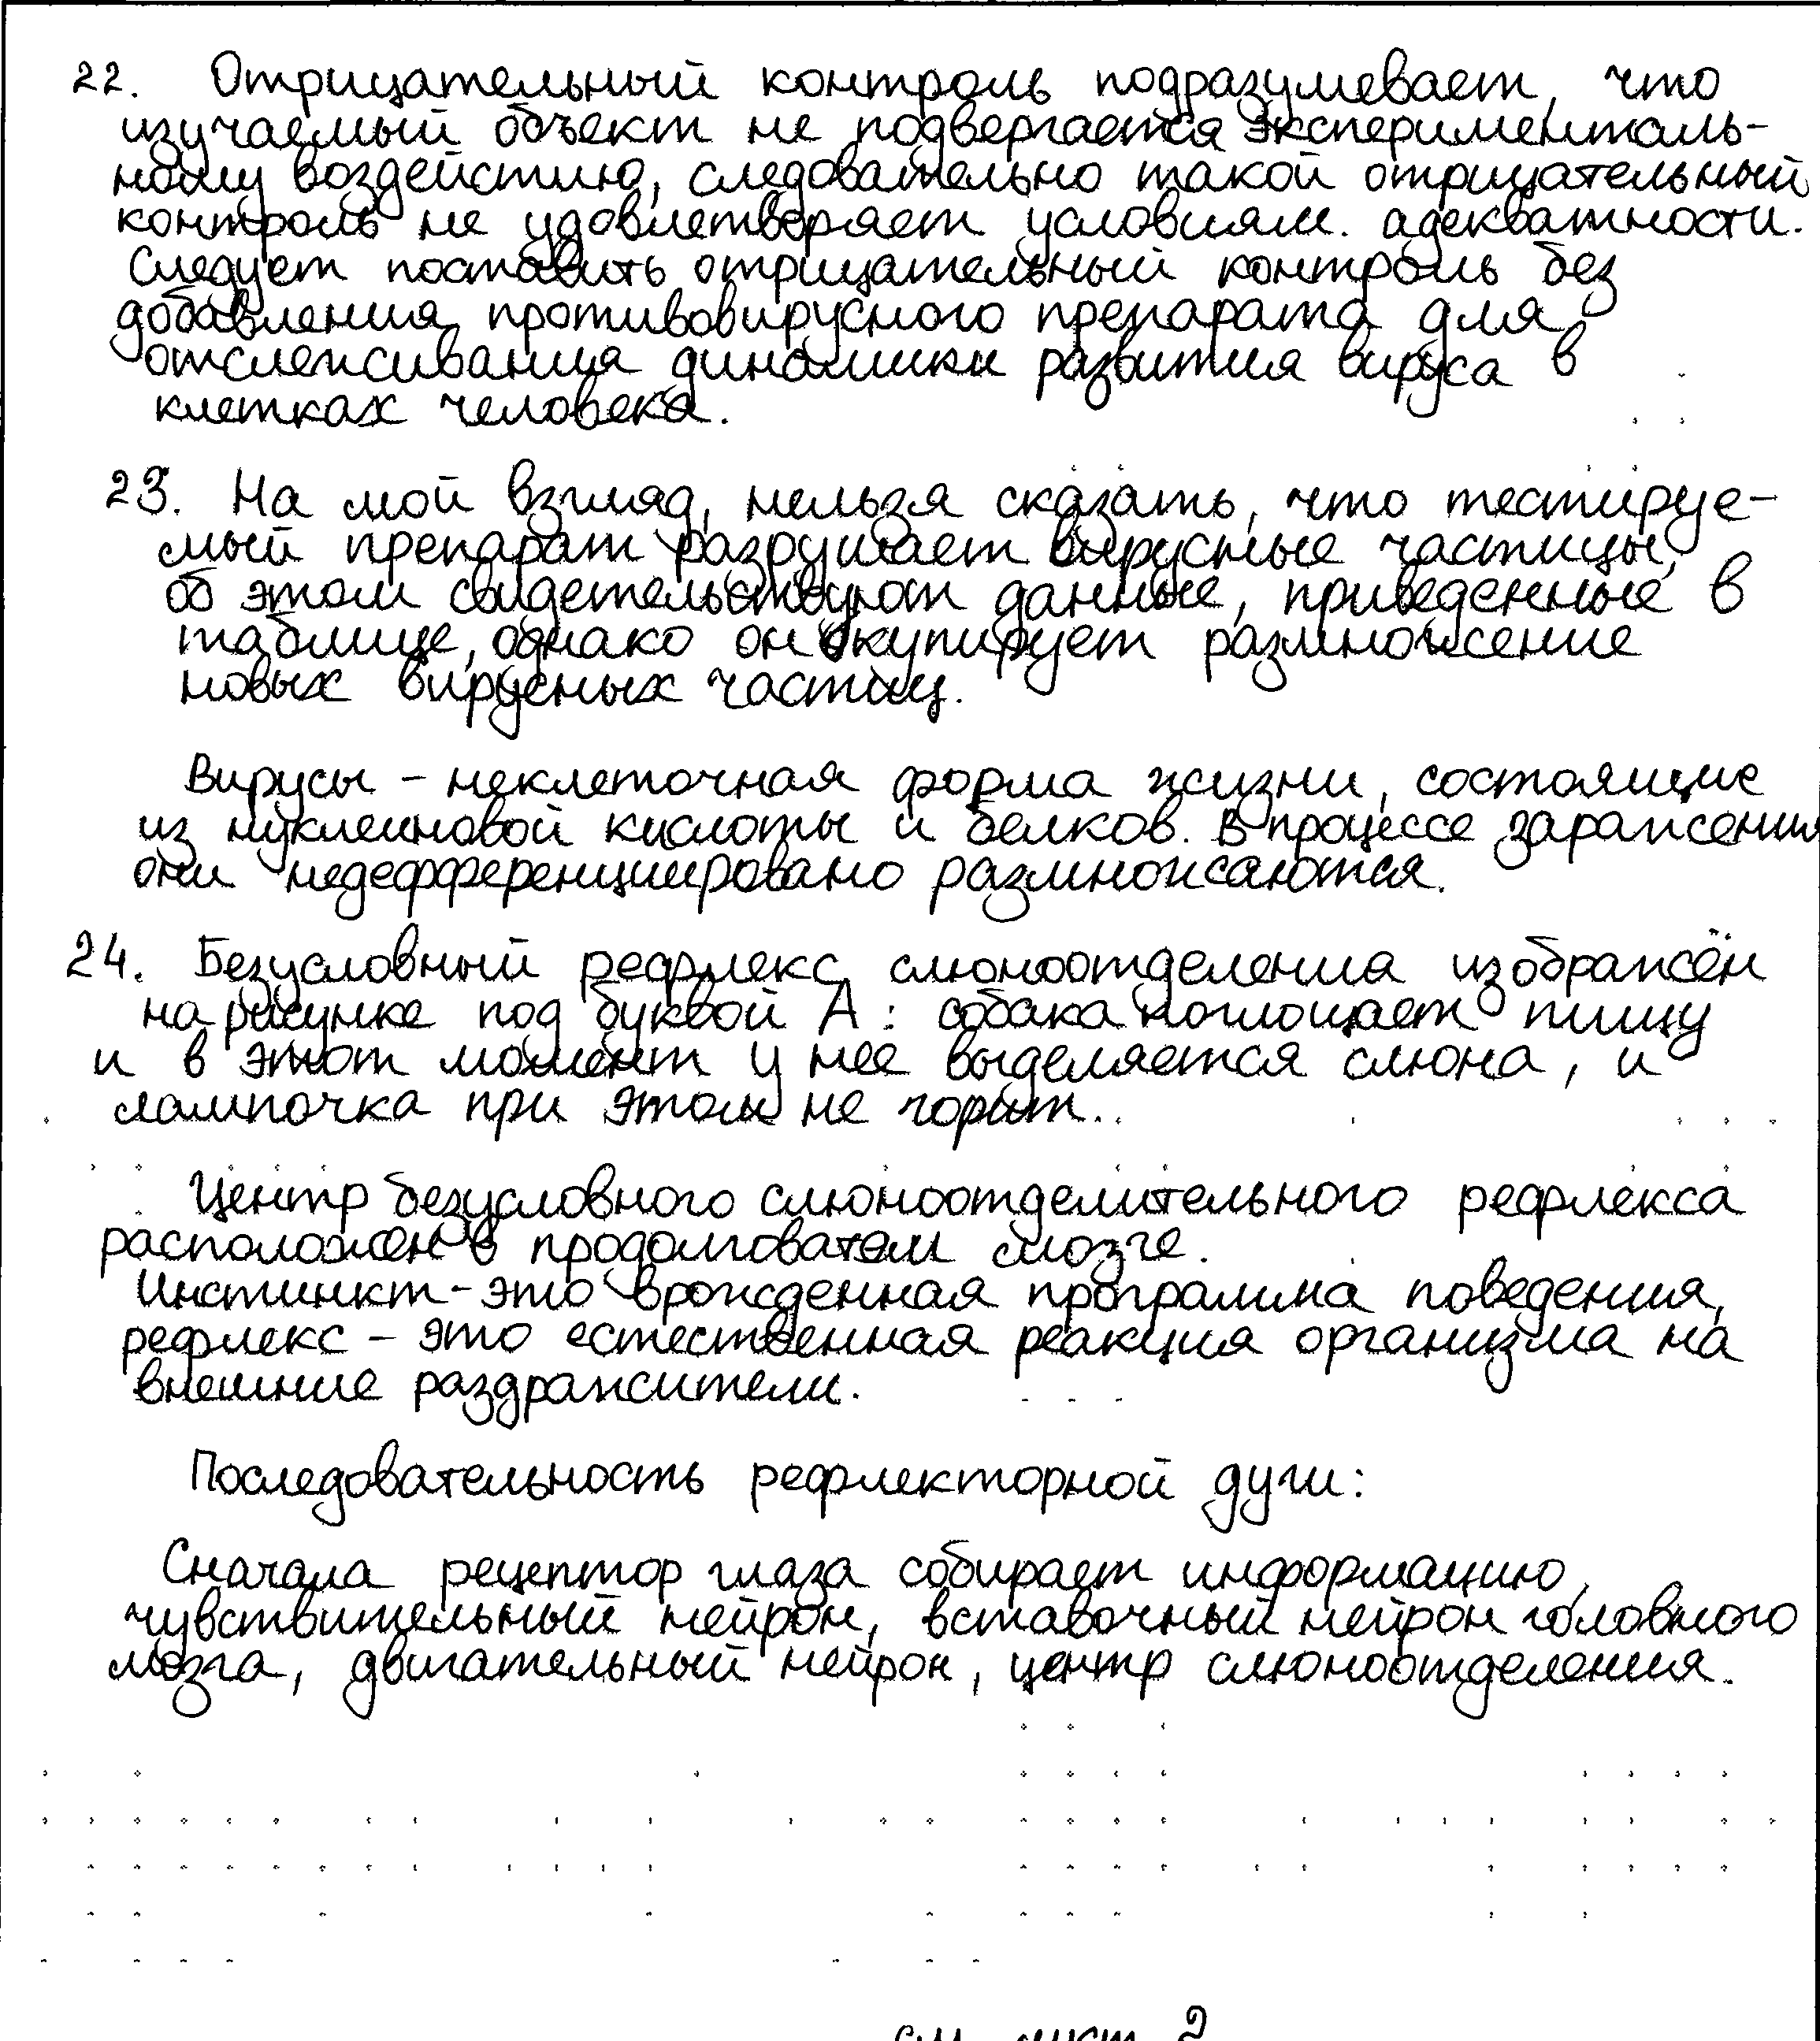 22. Отрицательный контроль подразумевает, что
изучаемый объект не подвергается эксперименталь-
ному воздейстию, следовательно такой отрицательный
контроль не удовлетворяет условиям. адекватности.
Следует поставить отрицательный контроль без
добавления противовирусного препарата для
отслеживания динамики развития вируса в
клетках человека.
23. На мой взгляд, нельзя сказать, что тестируе-
мый препарат разрушает вирусные частицы,
об этом свидетельствуют данные, приведенные в
таблице, однако он окупирует размножение
новых вирусных частиц.
Вирусы - неклеточная форма жизни, состоящие
из нуклеиновой кислоты и белков. В процессе заражения
они недефференциировано размножаются.
24. Безусловный рефлекс слюноотделения изображён
на рисунке под буквой А: собака поглощает пищу
и в этот момент у нее выделяется слюна, и
лампочка при этом не горит.
Центр безусловного слюноотделительного рефлекса
расположен в продолговатом мозге.
Инстинкт - это врожденная программа поведения,
рефлекс - это естественная реакция организма на
внешние раздражители.
Последовательность рефлекторной дуги:
Сначала рецептор глаза собирает информацию,
чувствительный нейрон, вставочный нейрон головного
мозга, двигательный нейрон, центр слюноотделения.
см. лист 2